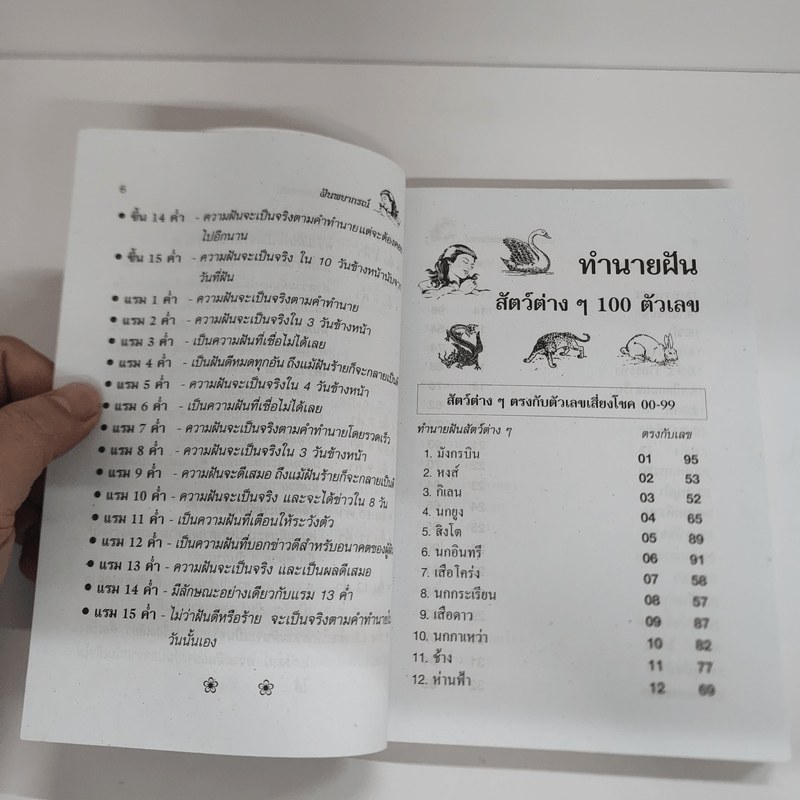 6
ฝันพยากรณ์
● ขึ้น 14 ค่ำ - ความฝันจะเป็นจริงตามคำทำนายแต่จะต้อง
ไปอีกนาน
● ขึ้น 15 ค่ำ - ความฝันจะเป็นจริง ใน 10 วันข้างหน้านับ
วันที่ฝัน
● แรม 1 ค่ำ - ความฝันจะเป็นจริงตามคำทำนาย
● แรม 2 ค่ำ - ความฝันจะเป็นจริงใน 3 วันข้างหน้า
● แรม 3 ค่ำ - เป็นความฝันที่เชื่อไม่ได้เลย
● แรม 4 ค่ำ - เป็นฝันดีหมดทุกอัน ถึงแม้ฝันร้ายก็จะกลายเป็น
● แรม 5 ค่ำ - ความฝันจะเป็นจริงใน 4 วันข้างหน้า
● แรม 6 ค่ำ - เป็นความฝันที่เชื่อไม่ได้เลย
● แรม 7 ค่ำ - ความฝันจะเป็นจริงตามคำทำนายโดยรวดเร็ว
● แรม 8 ค่ำ - ความฝันจะเป็นจริงใน 3 วันข้างหน้า
● แรม 9 ค่ำ - ความฝันจะดีเสมอ ถึงแม้ฝันร้ายก็จะกลายเป็น
● แรม 10 ค่ำ - ความฝันจะเป็นจริง และจะได้ข่าวใน 8 วัน
● แรม 11 ค่ำ - เป็นความฝันที่เตือนให้ระวังตัว
● แรม 12 ค่ำ - เป็นความฝันที่บอกข่าวดีสำหรับอนาคตของผู้
● แรม 13 ค่ำ - ความฝันจะเป็นจริง และเป็นผลดีเสมอ
● แรม 14 ค่ำ - มีลักษณะอย่างเดียวกับแรม 13 ค่ำ
● แรม 15 ค่ำ - ไม่ว่าฝันดีหรือร้าย จะเป็นจริงตามคำทำนาย
วันนั้นเอง
ทำนายฝัน
สัตว์ต่าง ๆ 100 ตัวเลข
สัตว์ต่าง ๆ ตรงกับตัวเลขเสี่ยงโชค 00-99
ทำนายฝันสัตว์ต่าง ๆ ตรงกับเลข
1. มังกรบิน 01 95
2. หงส์ 02 53
3. กิเลน 03 52
4. นกยูง 04 65
5. สิงโต 05 89
6. นกอินทรี 06 91
7. เสือโคร่ง 07 58
8. นกกระเรียน 08 57
9. เสือดาว 09 87
10. นกกาเหว่า 10 82
11. ช้าง 11 77
12. ห่านฟ้า 12 69